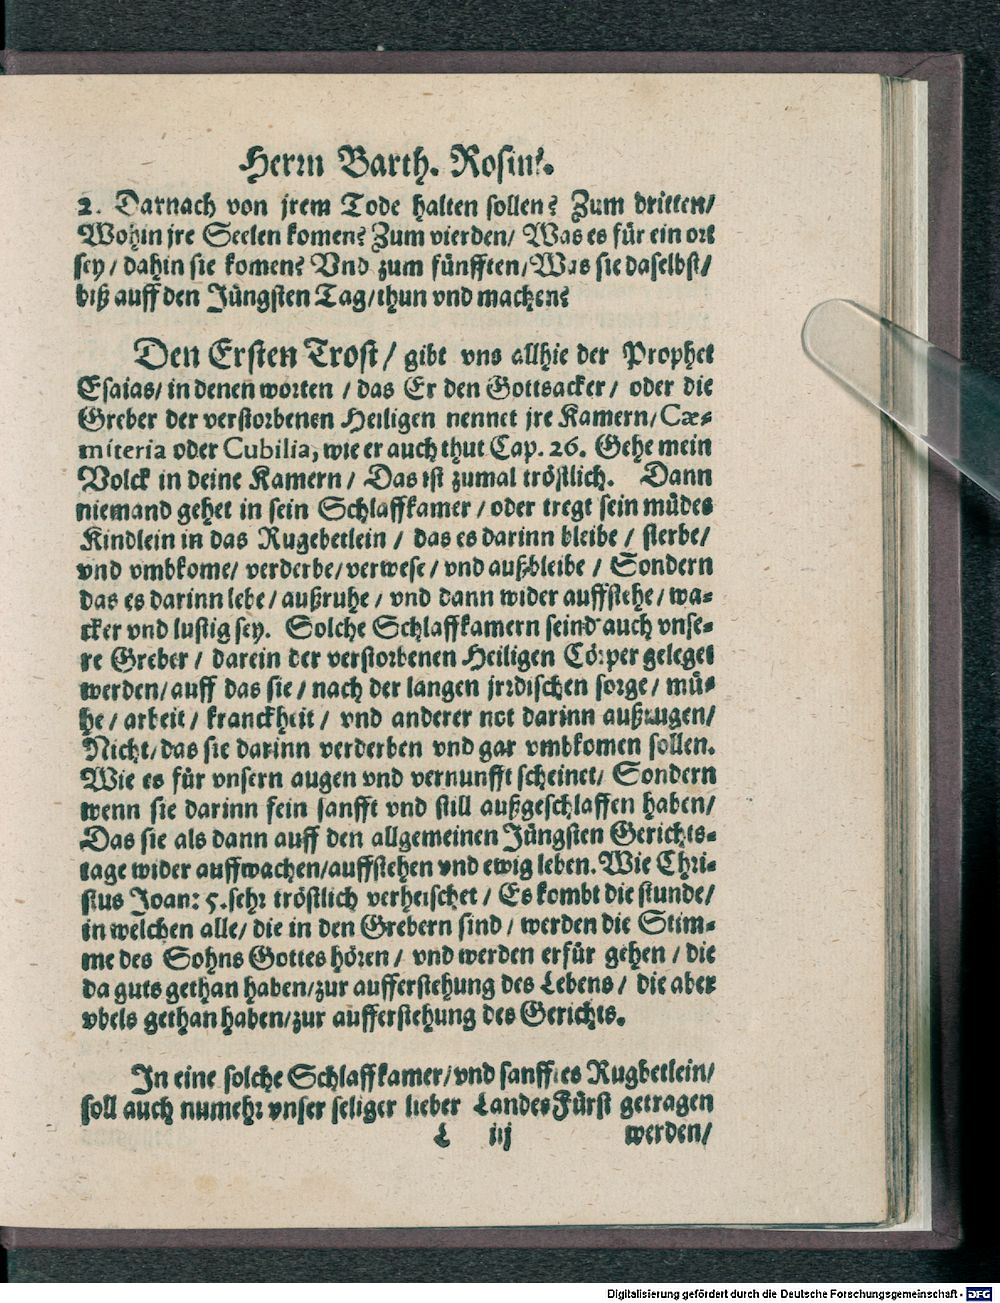 Herrn Barth. Rosini.
2. Darnach von jrem Tode halten sollen? Zum dritten/
Wohin jre Seelen komen? Zum vierden/ Was es für ein ort
sey/ dahin sie komen? Vnd zum fünfften/ Was sie daselbst/
biß auff den Jüngsten Tag/ thun vnd machen?
Den Ersten Trost/ gibt vns allhie der Prophet
Esaias/ in denen worten/ das Er den Gottsacker/ oder die
Greber der verstorbenen Heiligen nennet jre Kamern/ Cæ-
miteria oder Cubilia, wie er auch thut Cap. 26. Gehe mein
Volck in deine Kamern/ Das ist zumal tröstlich. Dann
niemand gehet in sein Schlaffkamer/ oder tregt sein müdes
Kindlein in das Rugebetlein/ das es darinn bleibe/ sterbe/
vnd vmbkome/ verderbe/ verwese/ vnd außbleibe/ Sondern
das es darinn lebe/ außruhe/ vnd dann wider auffstehe/ wa-
cker vnd lustig sey. Solche Schlaffkamern seind auch vnse-
re Greber/ darein der verstorbenen Heiligen Cörper geleget
werden/ auff das sie/ nach der langen jrrdischen sorge/ mü-
he/ arbeit/ kranckheit/ vnd anderer not darinn außrugen/
Nicht/ das sie darinn verderben vnd gar vmbkomen sollen.
Wie es für vnsern augen vnd vernunfft scheinet/ Sondern
wenn sie darinn fein sanfft vnd still außgeschlaffen haben/
Das sie als dann auff den allgemeinen Jüngsten Gerichts-
tage wider auffwachen/ auffstehen vnd ewig leben. Wie Chri-
stus Joan: 5. sehr tröstlich verheischet/ Es kombt die stunde/
in welchen alle/ die in den Grebern sind/ werden die Stim-
me des Sohns Gottes hören/ vnd werden erfür gehen/ die
da guts gethan haben/ zur aufferstehung des Lebens/ die aber
vbels gethan haben/ zur aufferstehung des Gerichts.
In eine solche Schlaffkamer/ vnd sanfftes Rugbetlein/
soll auch numehr vnser seliger lieber LandesFürst getragen
L iij werden/
Digitalisierung gefördert durch die Deutsche Forschungsgemeinschaft - DFG